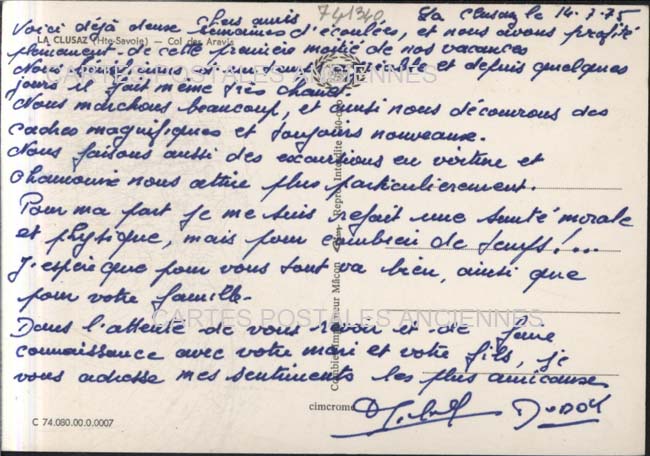 La Clusaz le 14.7.75
741340
Chers amis
Voici déjà deux semaines d'écoulées, et nous avons profité
LA CLUSAZ (Hte-Savoie) — Col des Aravis
pleinement de cette première moitié de nos vacances
Nous bénéficions d'un temps et depuis quelques
CARTES POSTALES ANCIENNES
jours il fait même très chaud.
Nous marchons beaucoup, et ainsi nous découvrons des
cadres magnifiques et toujours nouveaux.
Nous faisons aussi des excursions en voiture et
Chamonix nous attire plus particulièrement.
Pour ma part je me suis refait une santé morale
et physique, mais pour combien de temps!...
J'espère que pour vous tout va bien, ainsi que
pour votre famille.
CARTES POSTALES ANCIENNES
Dans l'attente de vous revoir et de faire
connaissance avec votre mari et votre fils, je
vous adresse mes sentiments les plus amicaux
Combier Imprimeur Mâcon Repro. Interdite
cimcrome
C 74.080.00.0.0007